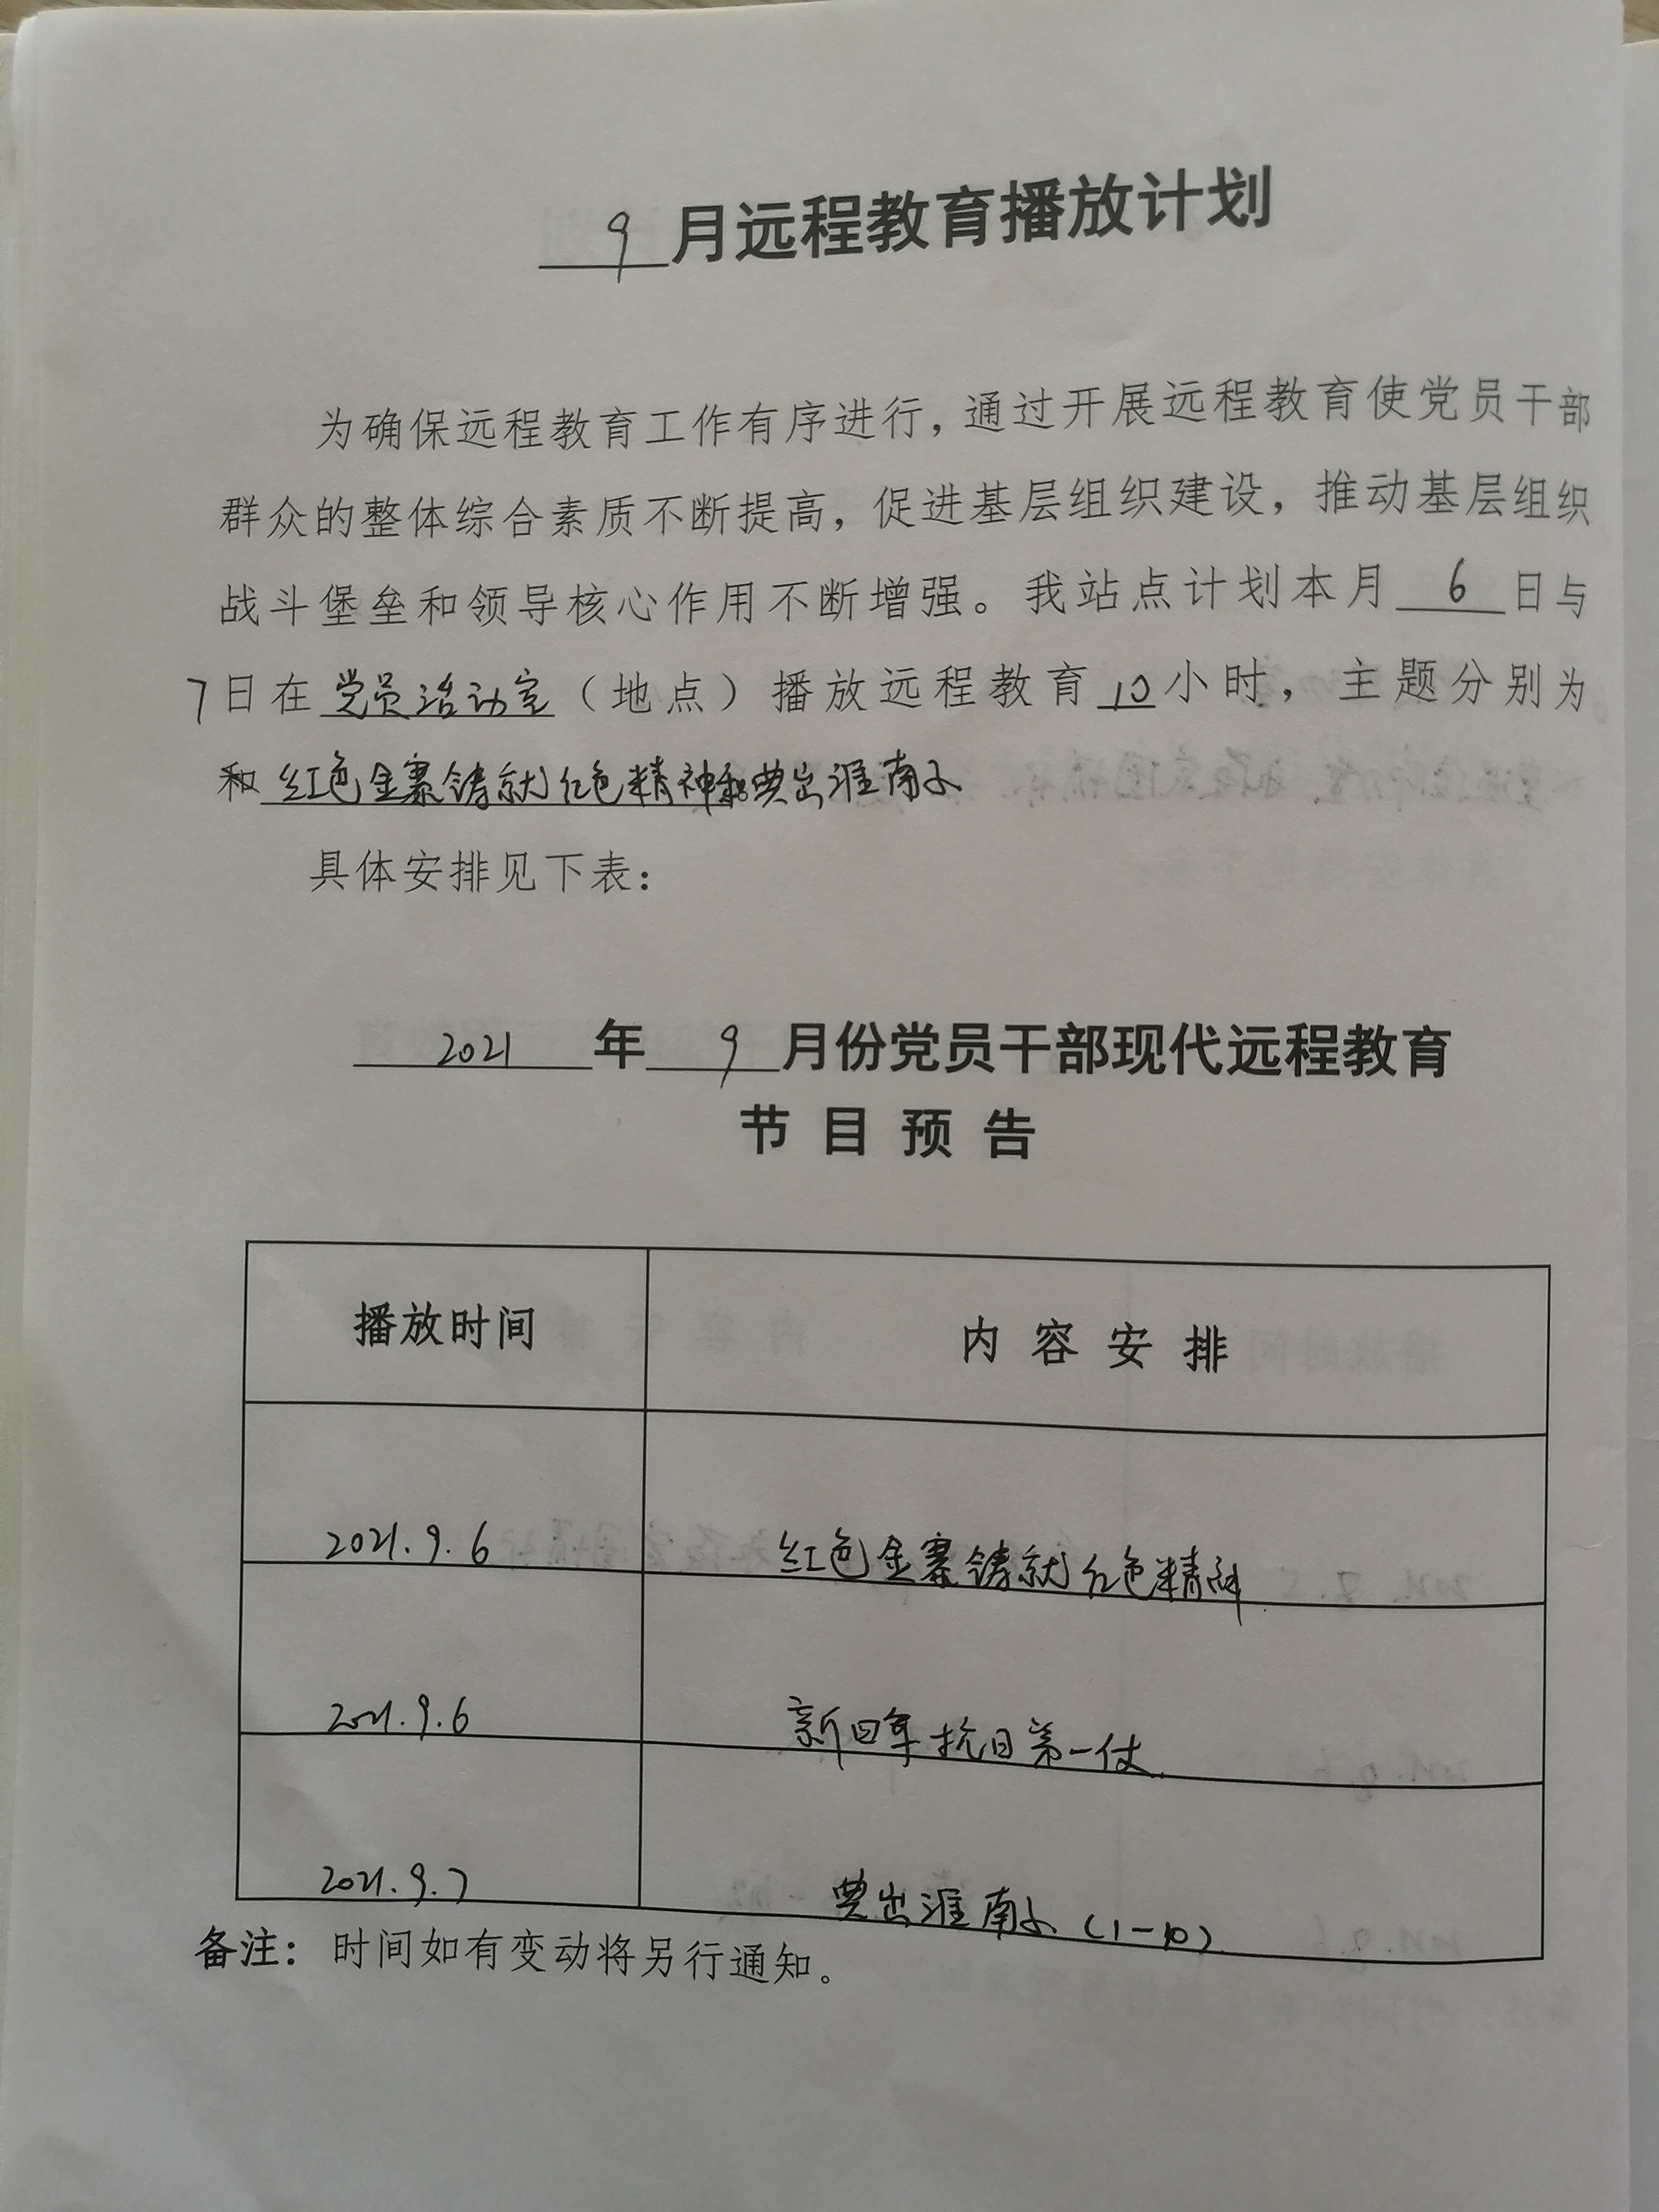 9月远程教育播放计划
为确保远程教育工作有序进行，通过开展远程教育使党员干部
群众的整体综合素质不断提高，促进基层组织建设，推动基层组织
战斗堡垒和领导核心作用不断增强。我站点计划本月6日与
7日在党员活动室（地点）播放远程教育10小时，主题分别为
和红色金寨铸就红色精神和典出淮南子
具体安排见下表：
2021年9月份党员干部现代远程教育
节目预告
播放时间 内容安排
2021.9.6 红色金寨铸就红色精神
2021.9.6 新四军抗日第一仗
2021.9.7 典出淮南子（1-10）
备注：时间如有变动将另行通知。